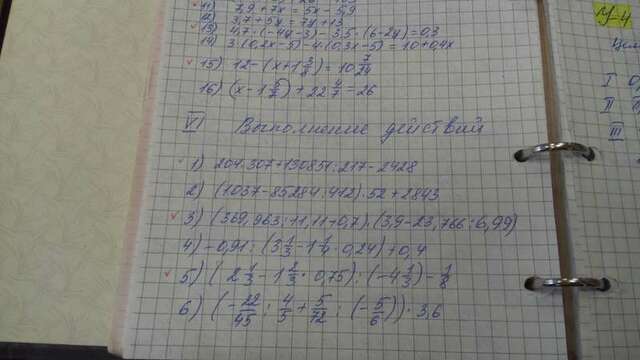 11) 7,9+7x = 5x-5,9
12) 3,7+5y = 7y+13
13) 4,7·(-4y-3)-3,5·(6-2y)=0,3
14) 3·(0,2x-5)-4·(0,3x-5)=10+0,4x
15) 12-(x+1 3/8)=10 7/24
16) (x-1 5/7)+22 4/7=26
VI Выполнение действий
1) 204·307+130851:217-2428
2) (1037-85284:412)·52+2843
3) (369,963:11,11+0,7)·(3,9-23,766:6,99)
4) -0,91:(3 1/3-1 1/4·0,24)+0,4
5) (2 1/3-1 2/3·0,75):(-4 1/3)-1/8
6) (-22/45:4/5+5/72:(-5/6))·3,6
I
II
III